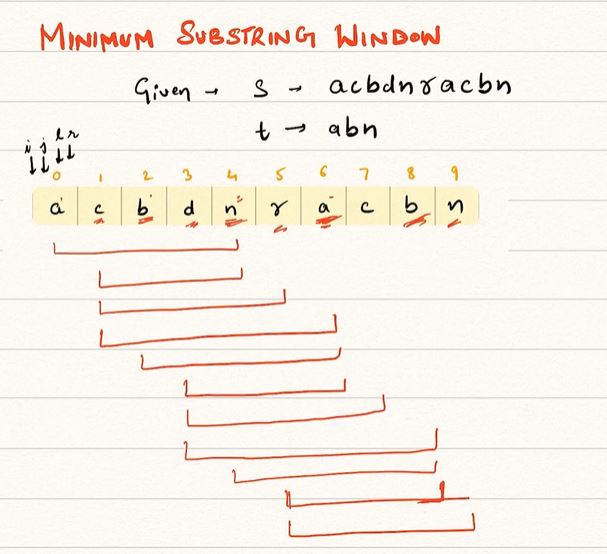 MINIMUM SUBSTRING WINDOW
Given → S → acbdnracbn
t → abn
i j l r
0 1 2 3 4 5 6 7 8 9
a c b d n r a c b n